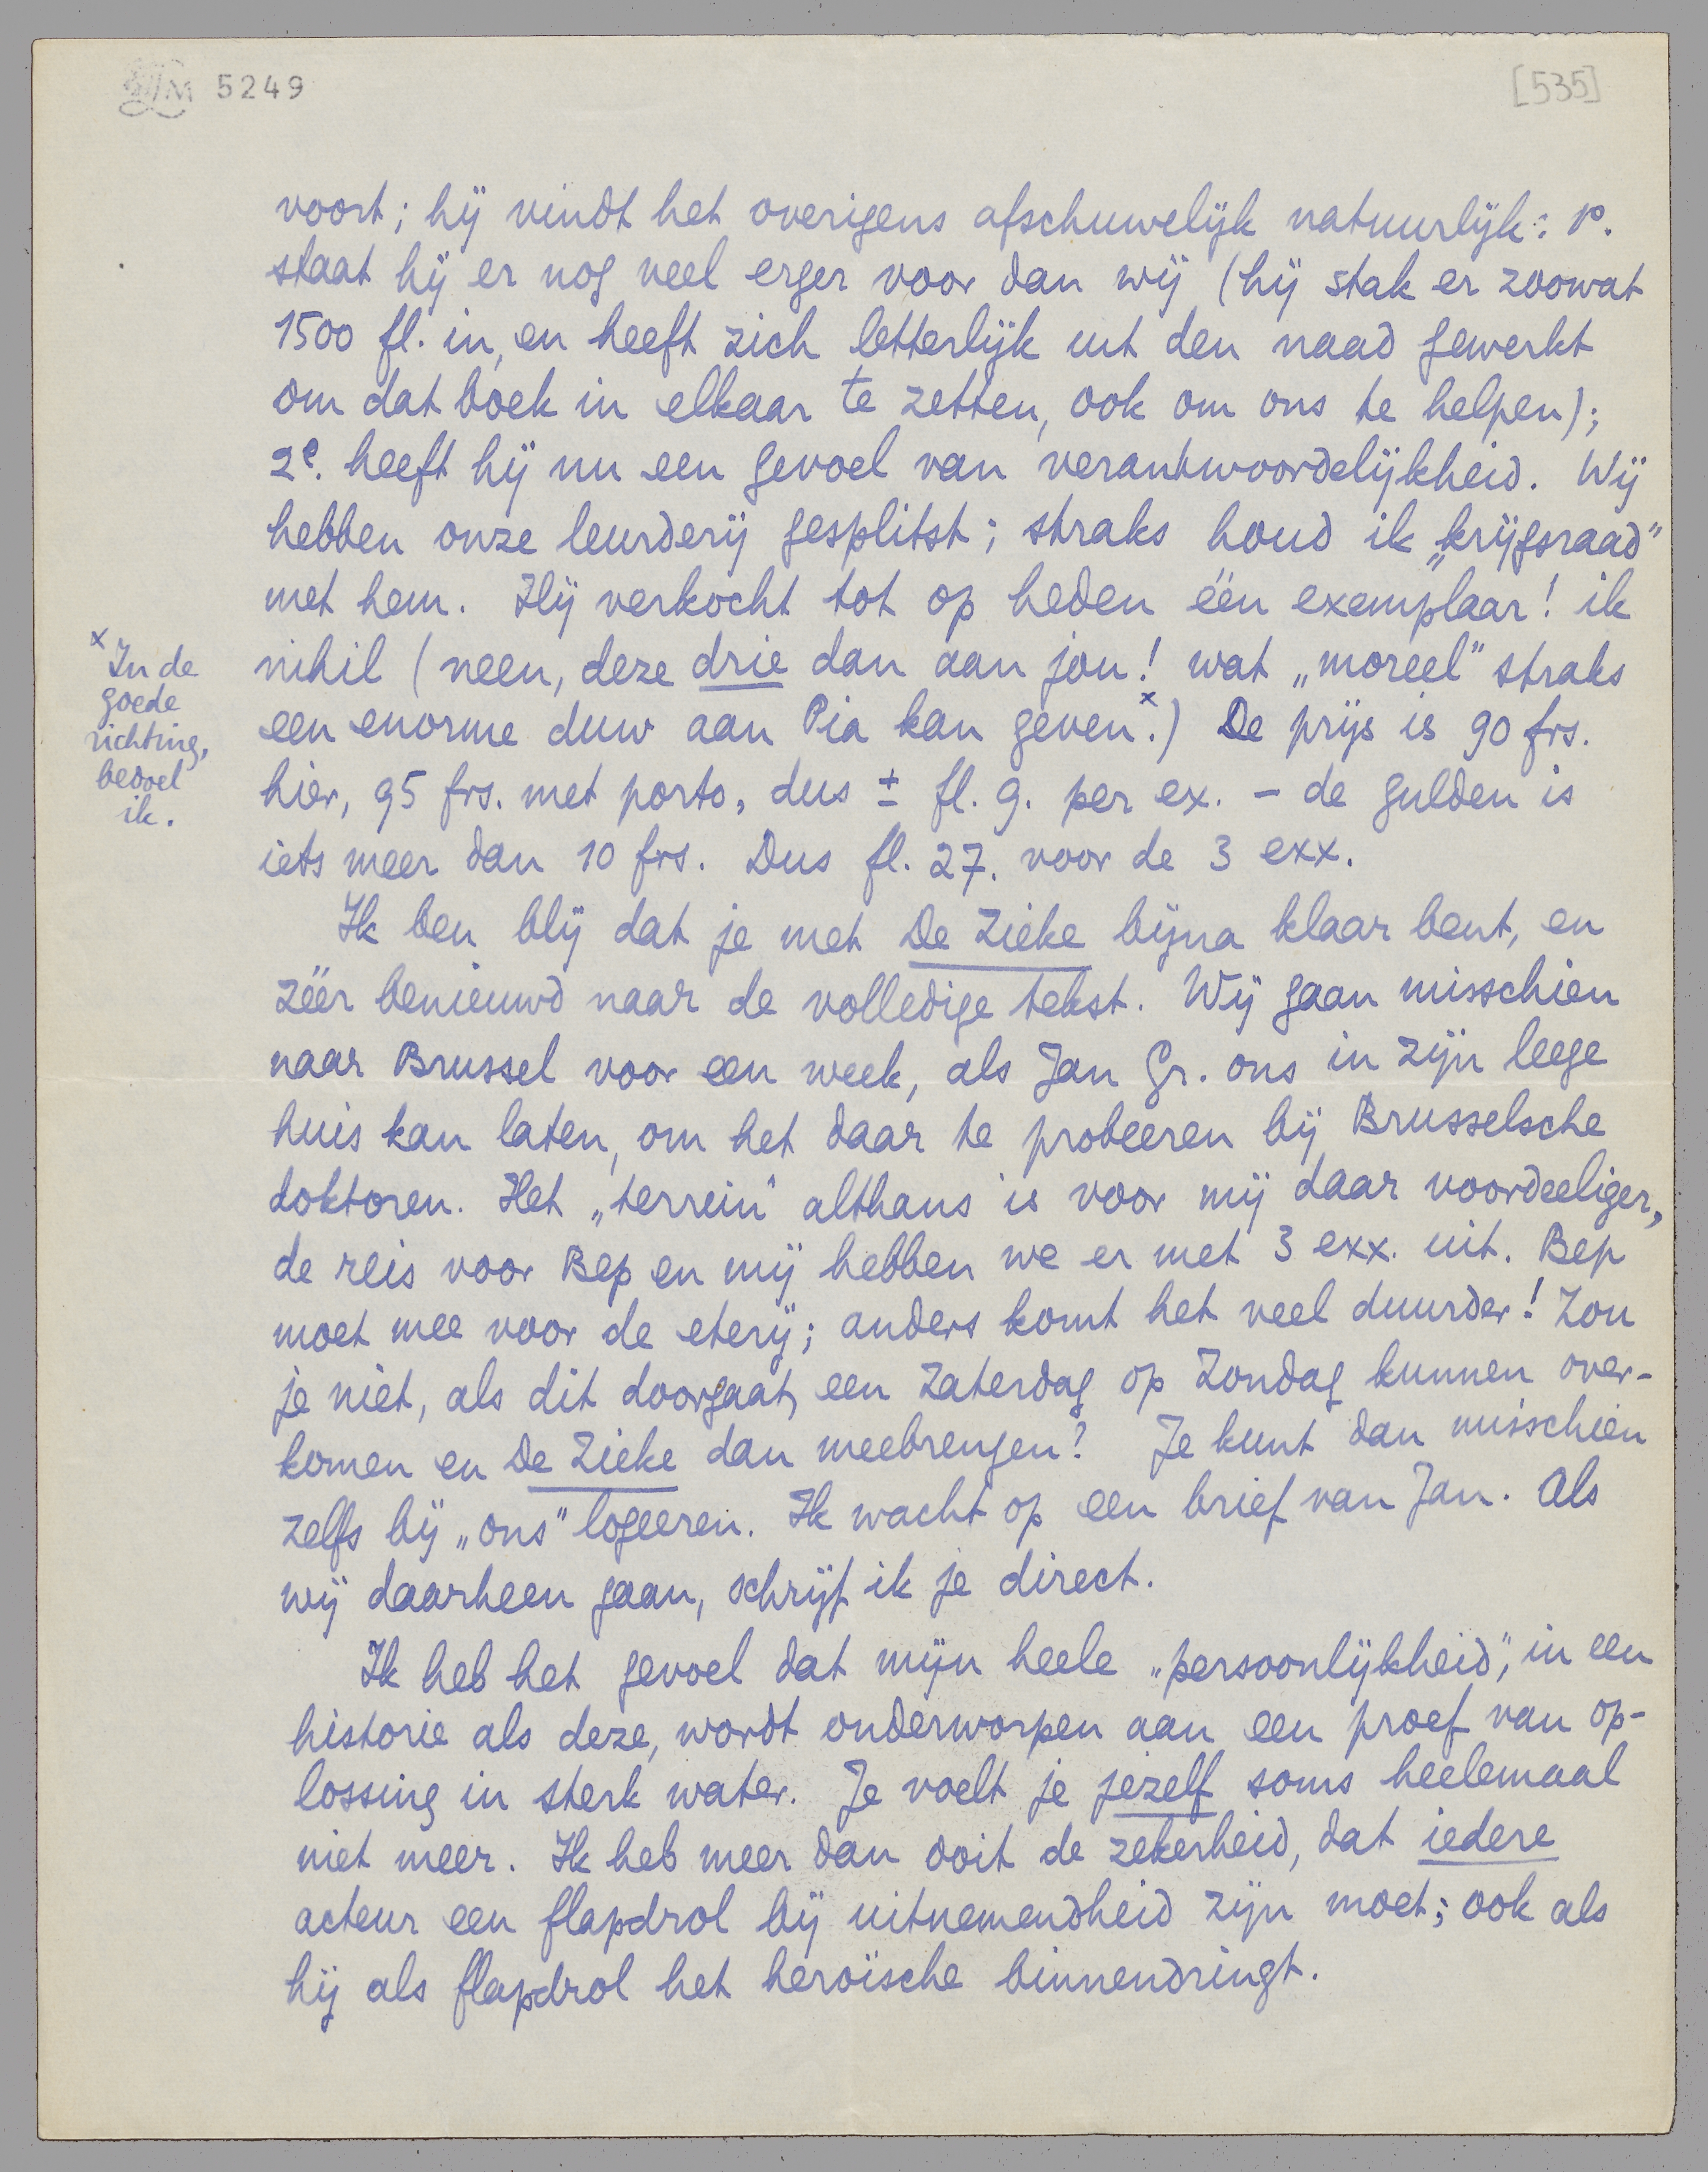 5249
[535]
voort; hij vindt het overigens afschuwelijk natuurlijk: 1º.
staat hij er nog veel erger voor dan wij (hij stak er zoowat
1500 fl. in, en heeft zich letterlijk uit den naad gewerkt
om dat boek in elkaar te zetten, ook om ons te helpen);
2e. heeft hij nu een gevoel van verantwoordelijkheid. Wij
hebben onze leurderij gesplitst; straks houd ik „krijgsraad”
met hem. Hij verkocht tot op heden één exemplaar! ik
nihil (neen, deze drie dan aan jou! wat „moreel” straks
een enorme duw aan Pia kan geven x.) De prijs is 90 frs.
hier, 95 frs. met porto, dus ± fl. 9. per ex. – de gulden is
iets meer dan 10 frs. Dus fl. 27. voor de 3 exx.
x In de
goede
richting,
bedoel
ik.
Ik ben blij dat je met De Zieke bijna klaar bent, en
zéér benieuwd naar de volledige tekst. Wij gaan misschien
naar Brussel voor een week, als Jan Gr. ons in zijn leege
huis kan laten, om het daar te probeeren bij Brusselsche
doktoren. Het „terrein” althans is voor mij daar voordeeliger,
de reis voor Bep en mij hebben we er met 3 exx. uit. Bep
moet mee voor de eterij; anders komt het veel duurder! Zou
je niet, als dit doorgaat, een Zaterdag op Zondag kunnen over-
komen en De Zieke dan meebrengen? Je kunt dan misschien
zelfs bij „ons” logeeren. Ik wacht op een brief van Jan. Als
wij daarheen gaan, schrijf ik je direct.
Ik heb het gevoel dat mijn heele „persoonlijkheid”, in een
historie als deze, wordt onderworpen aan een proef van op-
lossing in sterk water. Je voelt je jezelf soms heelemaal
niet meer. Ik heb meer dan ooit de zekerheid, dat iedere
acteur een flapdrol bij uitnemendheid zijn moet; ook als
hij als flapdrol het heroïsche binnendringt.